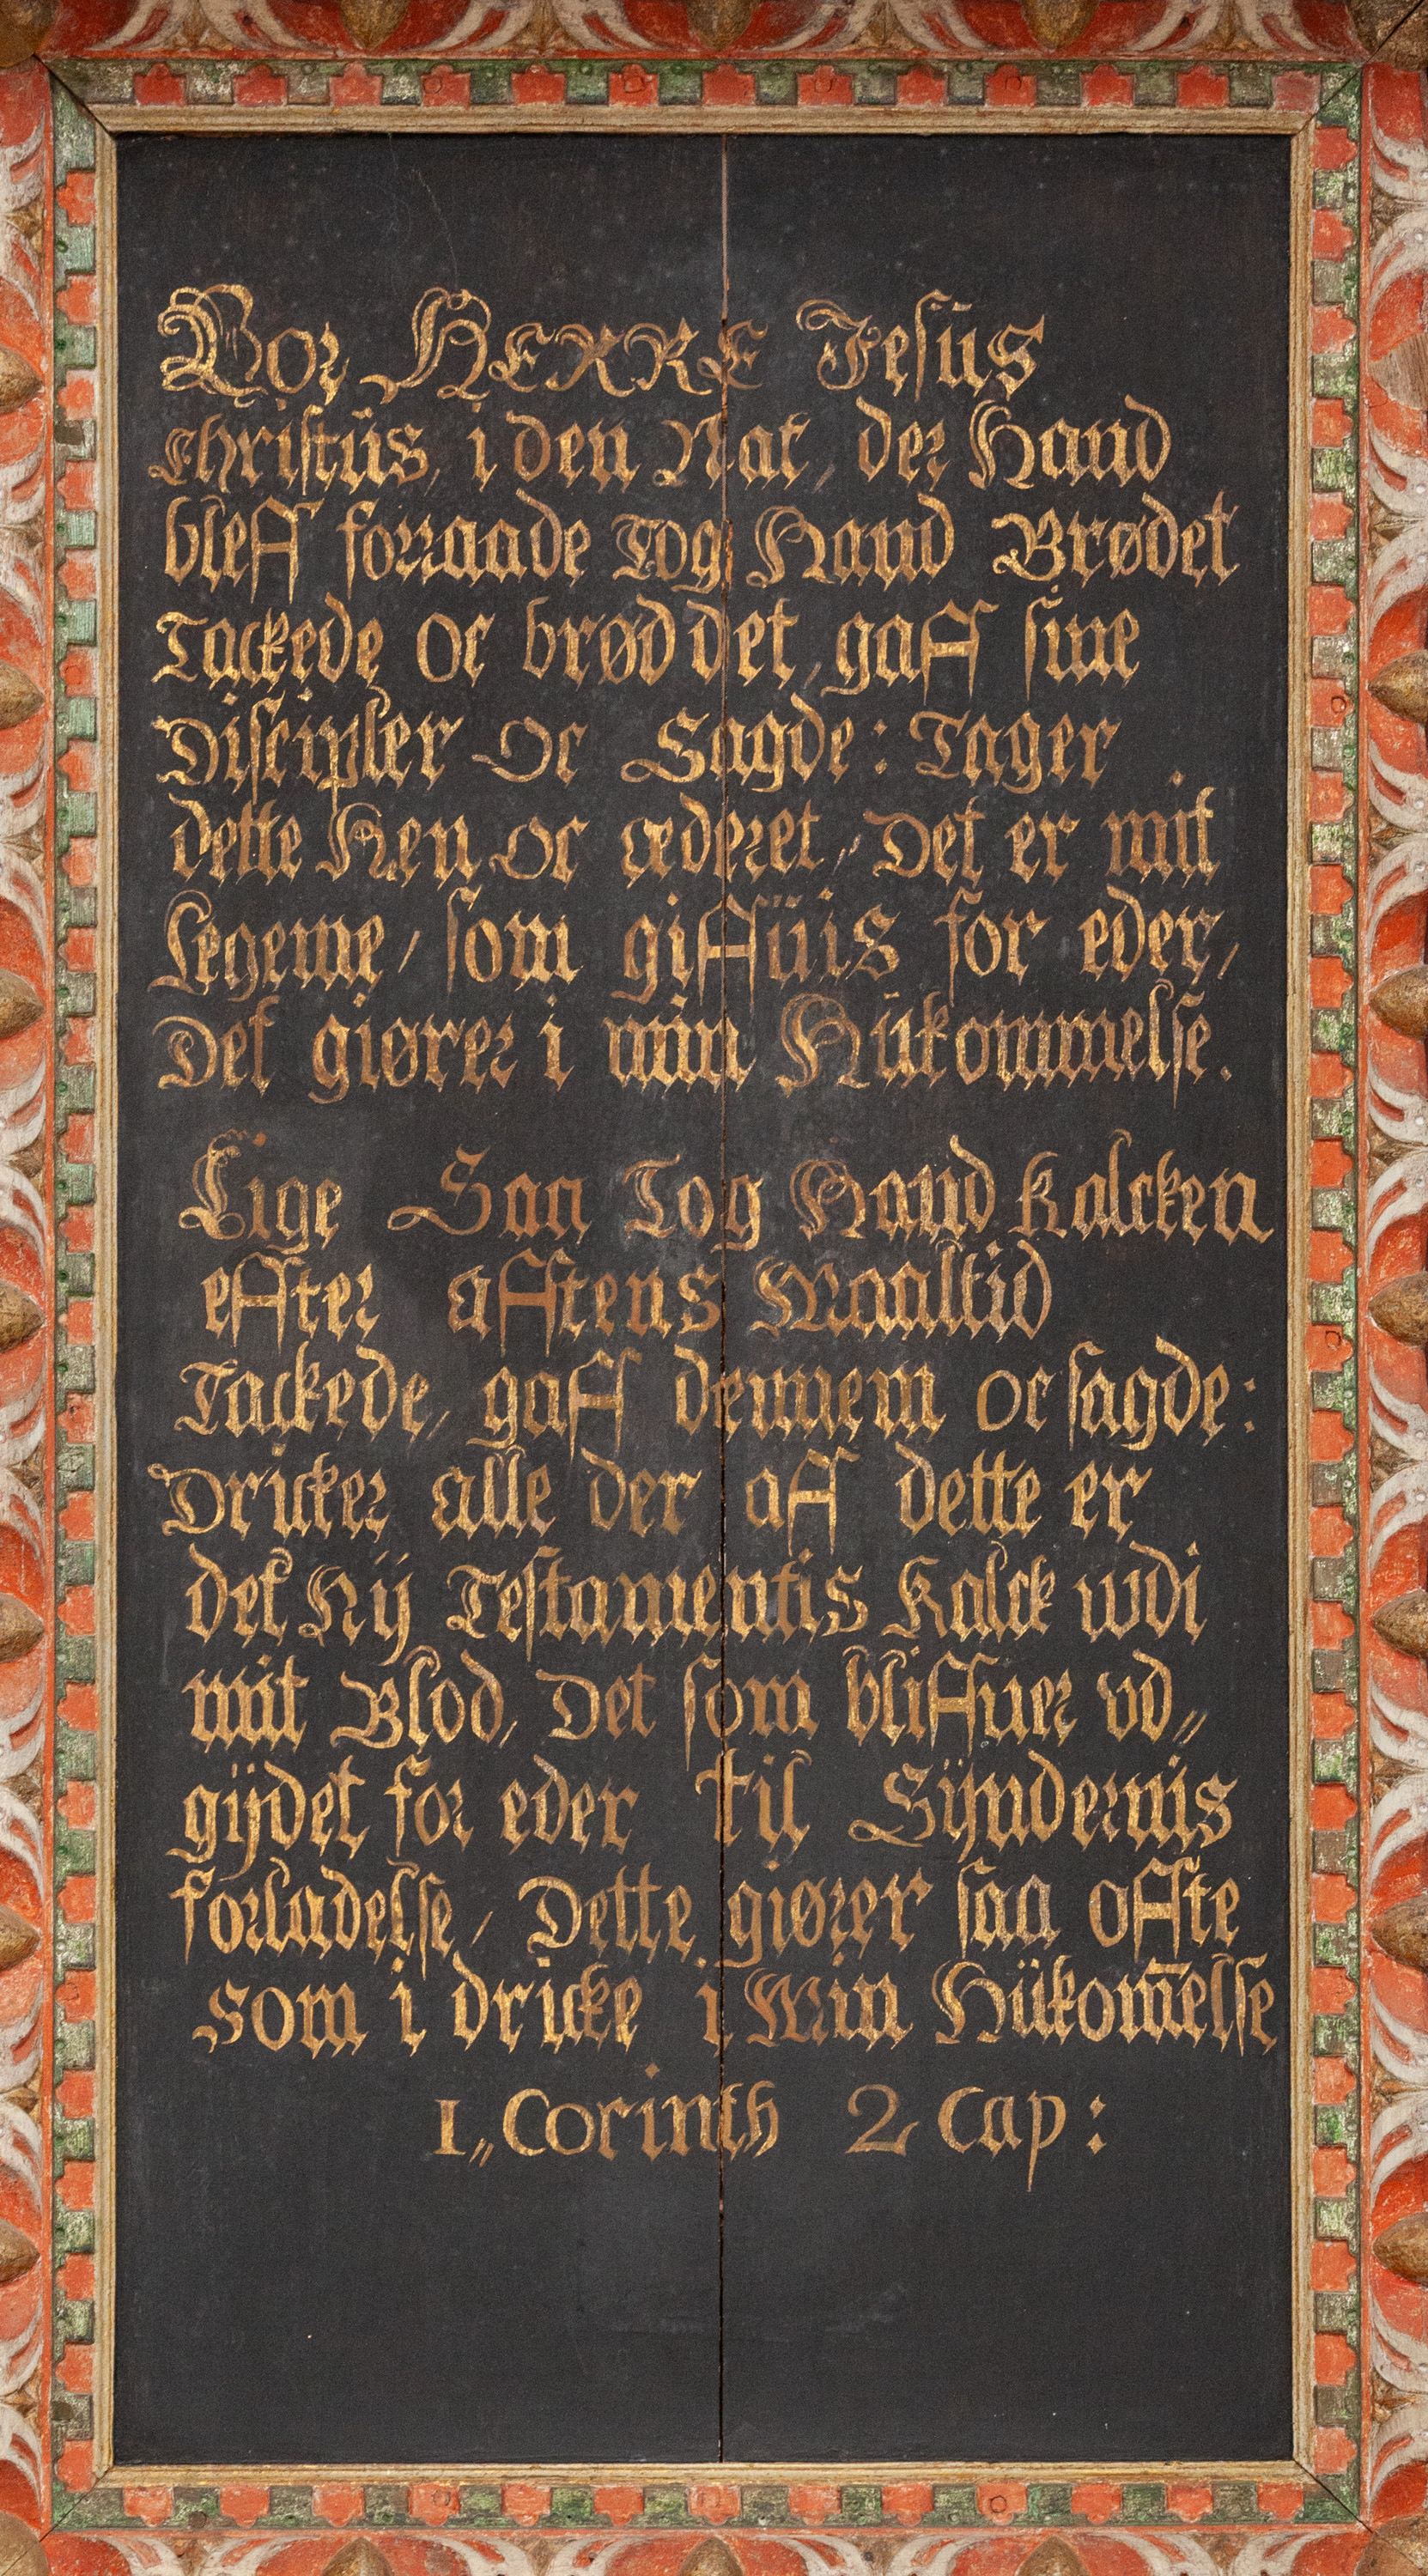 Vor HERRE Jesüs
Christüs, i den Nat, der Hand
bleff forraade Tog Hand Brødet
Tackede Oc brød det, gaff sine
Discipler Oc Sagde: Tager
dette Hen oc æderet, Det er mit
Legeme, som giffüis for eder,
Det giører i min Hükommelse.
Lige Saa Tog Hand Kalcken
effter afftens Maaltid
Tackede, gaff dennem oc sagde:
Dricker alle der aff dette er
det Nÿ Testamentis Kalck wdi
mit Blod, Det som bliffuer vd,,
gÿdet for eder til Sÿndernis
forladelse, Dette giører saa offte
som i dricke i Min Hükom̅else
1,, Corinth 2 Cap: